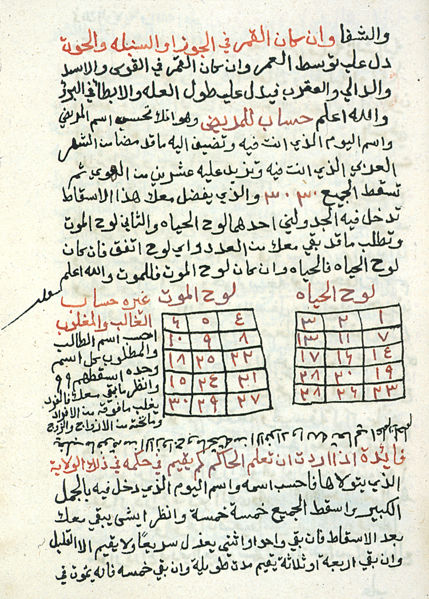 والشفا وان كان القمر في الجوزا والسنبله والحوت
دل على توسط العمر وان كان القمر في القوس والاسد
والدالي والعقرب فيدل على طول العله والابطا في البرؤ
والله اعلم حساب للمريض وهو انك تحسب اسم المريض
واسم اليوم الذي انت فيه وتضيف اليه ما قد مضا من الشهر
العربي الذي انت فيه وتزيد عليه عشرين من الهوي ثم
تسقط الجميع ٣٠ ٣٠ والذي يفضل معك هذا الاسقاط
تدخل فيه الجدولين احدهما لوح الحياه والثاني لوح الموت
وتطلب ما قد بقي معك من العدد واي لوح اتفق فان كان
لوح الحياه فالحياه وان كان لوح الموت فللموت والله اعلم
لوح الحياه
١ ٢ ٣
٧ ١١ ١٣
١٤ ١٦ ١٧
١٩ ٢٠ ٢٨
٢٣ ٢٦ ٢٨
لوح الموت
٤ ٥ ٦
٨ ٩ ١٠
٢٢ ٢٥ ١٨
٢١ ٢٤ ١٥
٢٧ ٢٩ ٣٠
غيره حساب
الغالب والمغلوب
احسب اسم الطالب
والمطلوب كل اسم
وحده اسقطهم ٩ ٩
وانظر ما بقي معك
يغلب ما فوقه من الافراد
وما تحته من الازواج والزوج
فائدة اذا اردت ان تعلم الحاكم كم يقيم في حكمه في ذلك الولاية
الذي يتولاها فاحسب اسمه واسم اليوم الذي دخل فيه بالجمل
الكبير واسقط الجميع خمسة خمسة وانظر ايش يبقى معك
بعد الاسقاط فان بقي واحد او اثنين يعزل سريعا ولا يقيم الا القليل
وان بقي اربعة او ثلاثة يقيم مدة طويلة وان بقي خمسه فانه يموت في